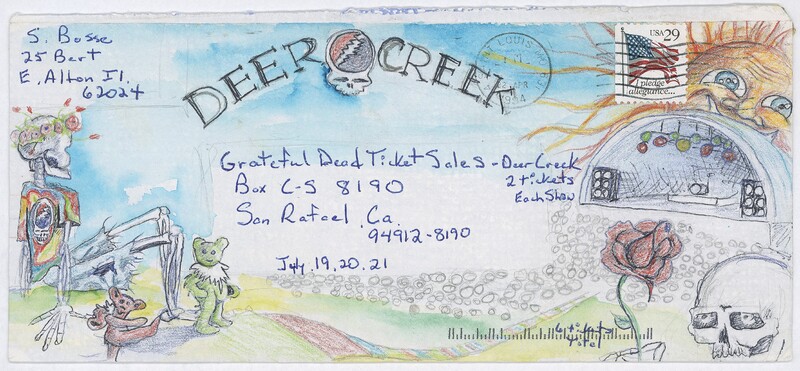 S. Bosse
25 Bert
E. Alton Il.
62024
DEER CREEK
ST LOUIS
APR
USA 29
I pledge
allegiance...
Grateful Dead Ticket Sales - Deer Creek
2 tickets
Each Show
Box C-S 8190
San Rafael, Ca.
94912-8190
July, 19, 20, 21
6 tickets
total